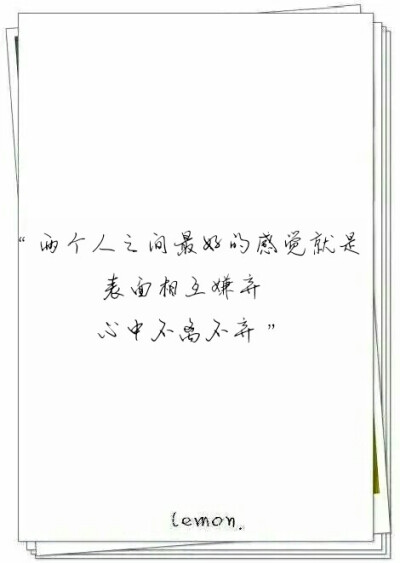 “两个人之间最好的感觉就是
表面相互嫌弃
心中不离不弃”
lemon.